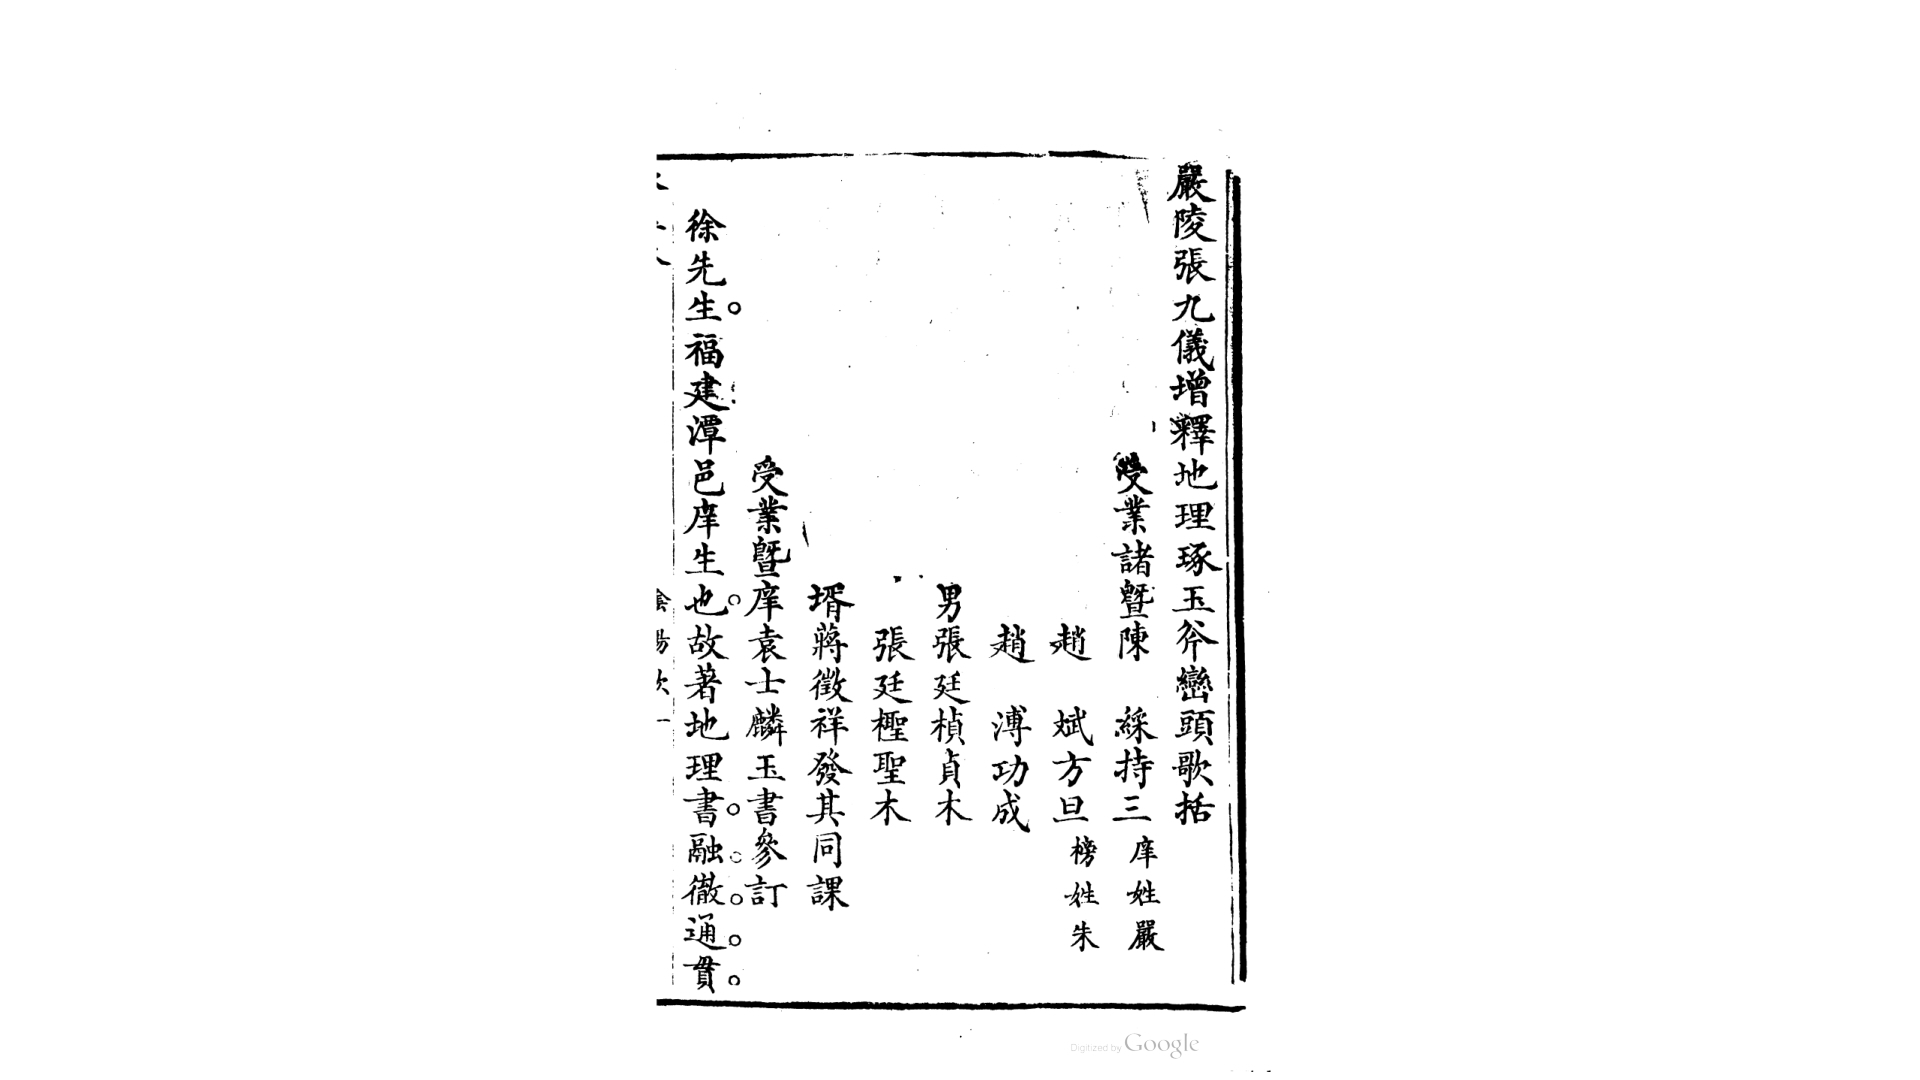 嚴陵張九儀增釋地理琢玉斧巒頭歌括
受業諸暨陳　綵持三庠姓嚴
趙　斌方旦榜姓朱
趙　溥功成
男張廷楨貞木
張廷檉聖木
壻蔣徵祥發其同課
受業暨庠袁士麟玉書參訂
徐先生。福建潭邑庠生也。故著地理書。融。徹。通。貫。
Digitized by Google